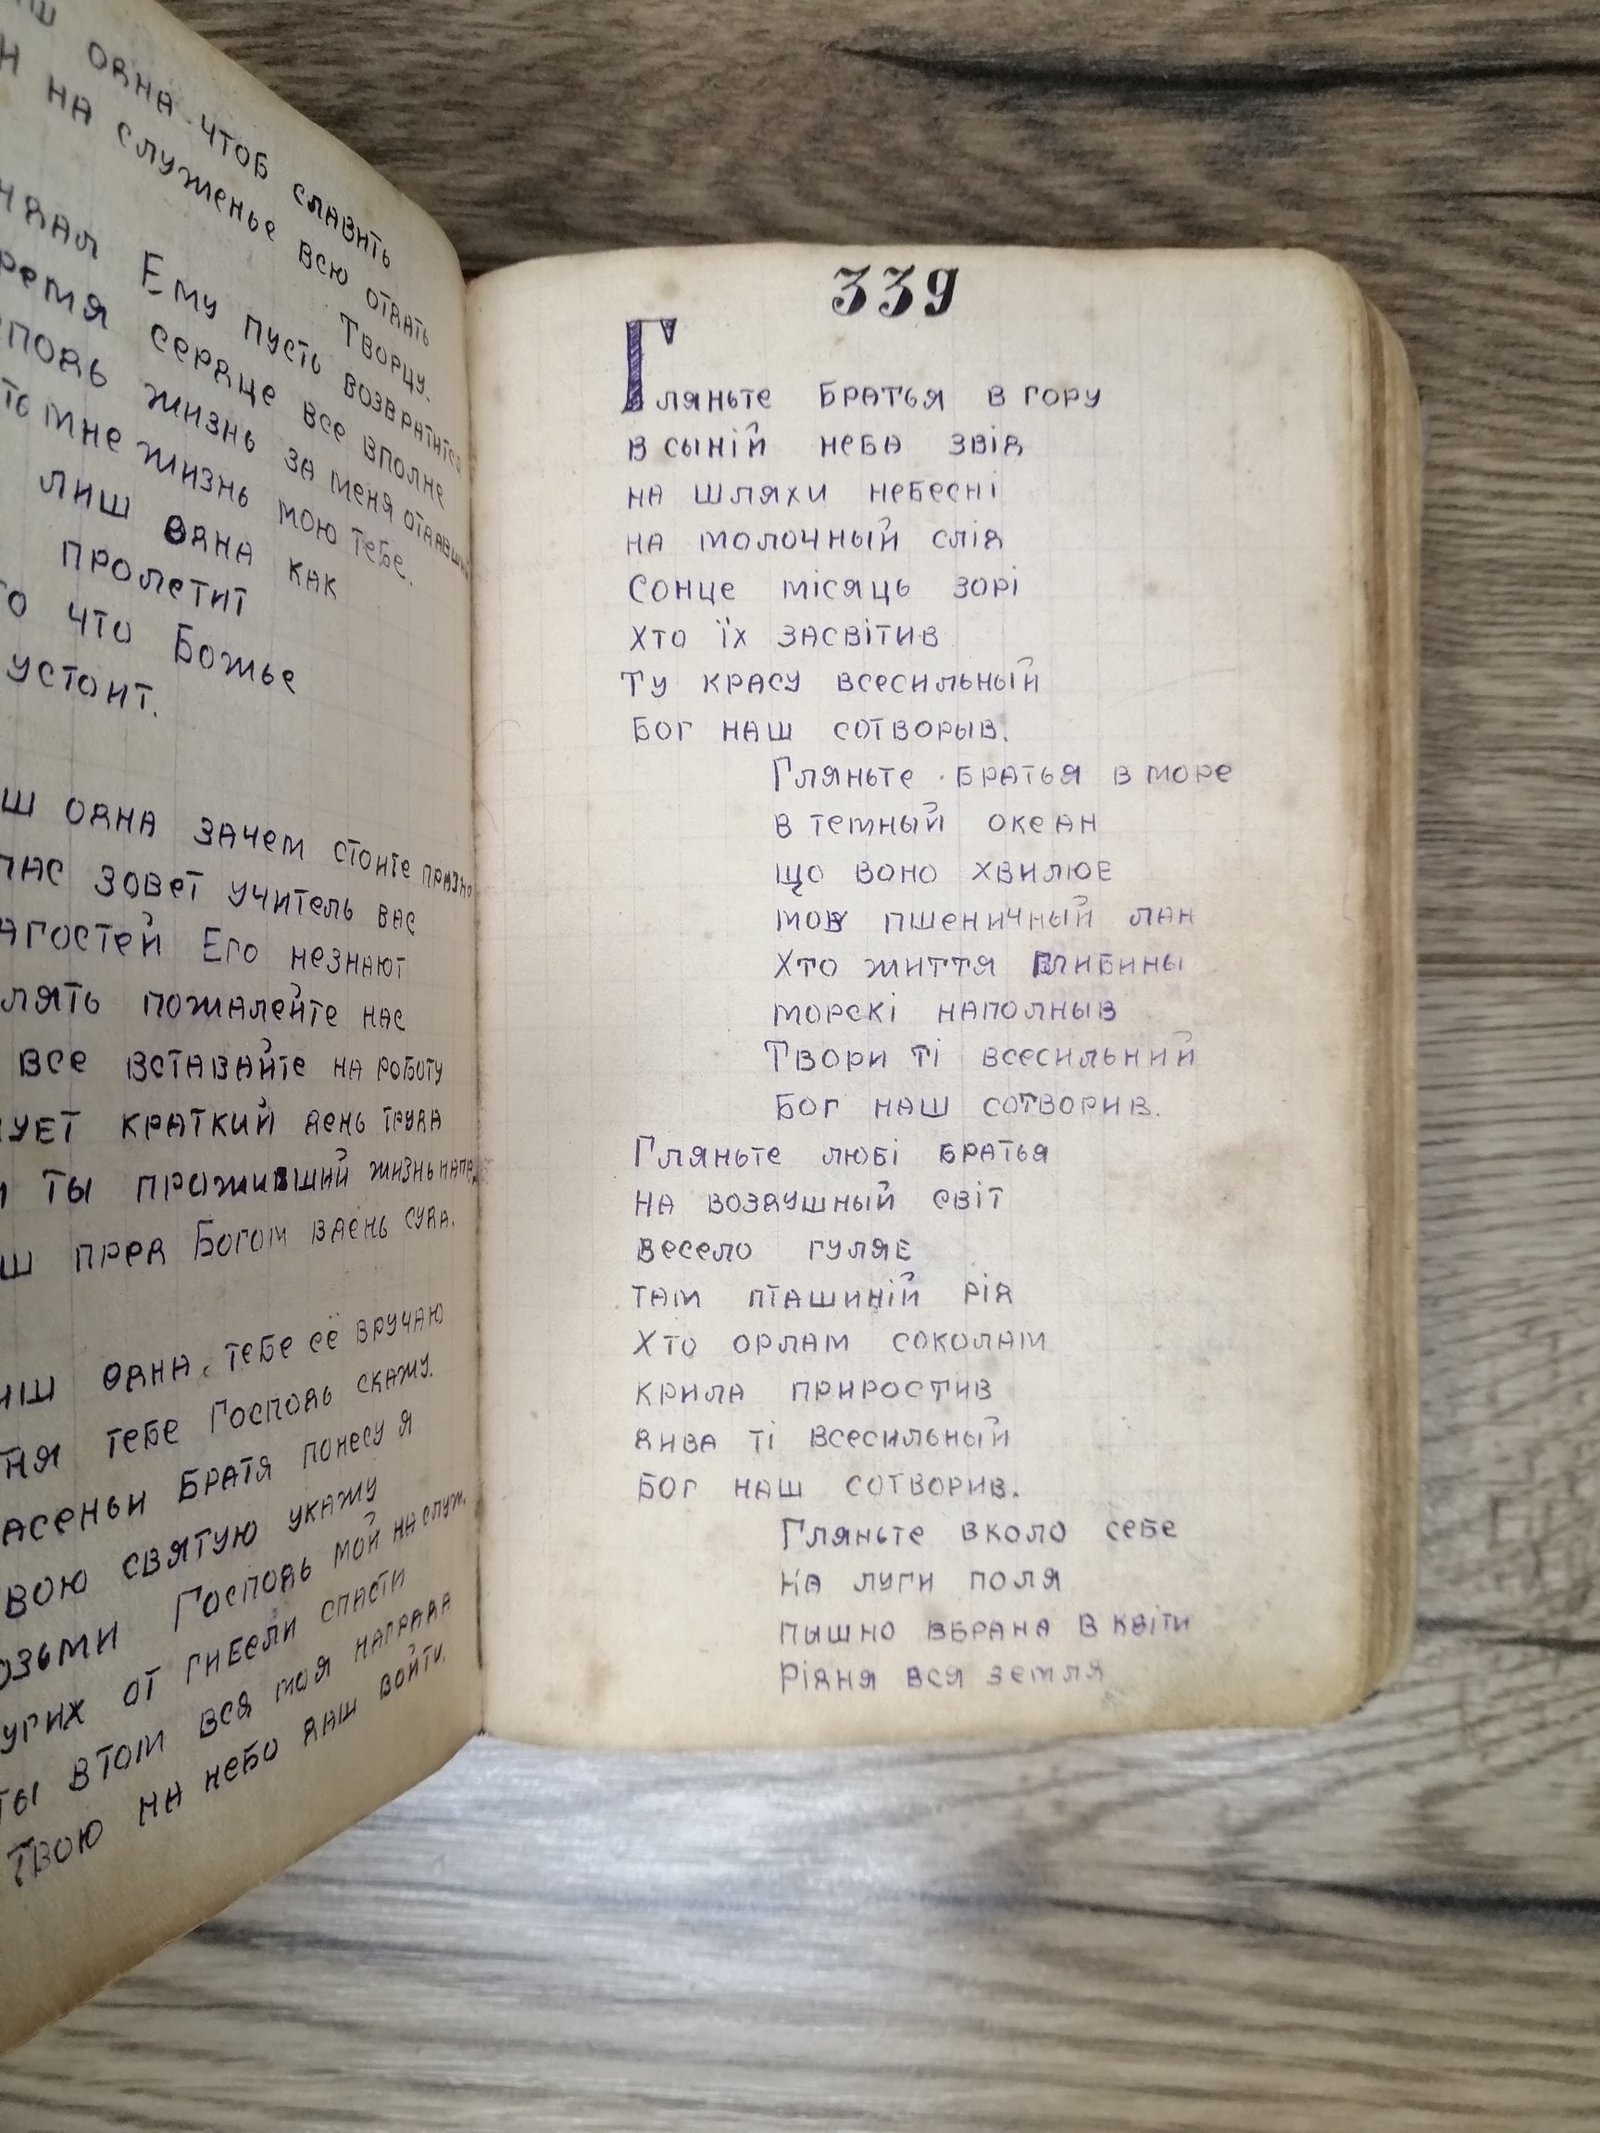 одна чтоб славить
на служенье всю отдать
Творцу.
Ему пусть возвратится
сердце все вполне
жизнь за меня отдавший
мне жизнь мою тебе.
лиш одна как
пролетит
что Божье
устоит.
одна зачем стоите празно
зовет учитель вас
Его незнают
пожалейте нас
все вставайте на роботу
краткий день труда
ты проживший жизнь
пред Богом вдень суда.
одна, тебе её вручаю
тебе Господь скажу.
братя понесу я
святую укажу
Господь мой на служ.
от гибели спасти
втом вся моя награда
Твою на небо даш войти.
339
Гляньте братья в гору
в сыній неба звід
на шляхи небесні
на молочный слід
Сонце місяць зорі
хто їх засвітив
Ту красу всесильный
Бог наш сотворыв.
Гляньте братья в море
в темный океан
що воно хвилює
мов пшеничный лан
Хто життя глибины
морскі наполныв
Твори ті всесильний
Бог наш сотворив.
Гляньте любі братья
на воздушный світ
весело гуляє
там пташиній рід
Хто орлам соколам
крила приростив
дива ті всесильный
Бог наш сотворив.
Гляньте вколо себе
на луги поля
пышно вбрана в квіти
рідня вся земля